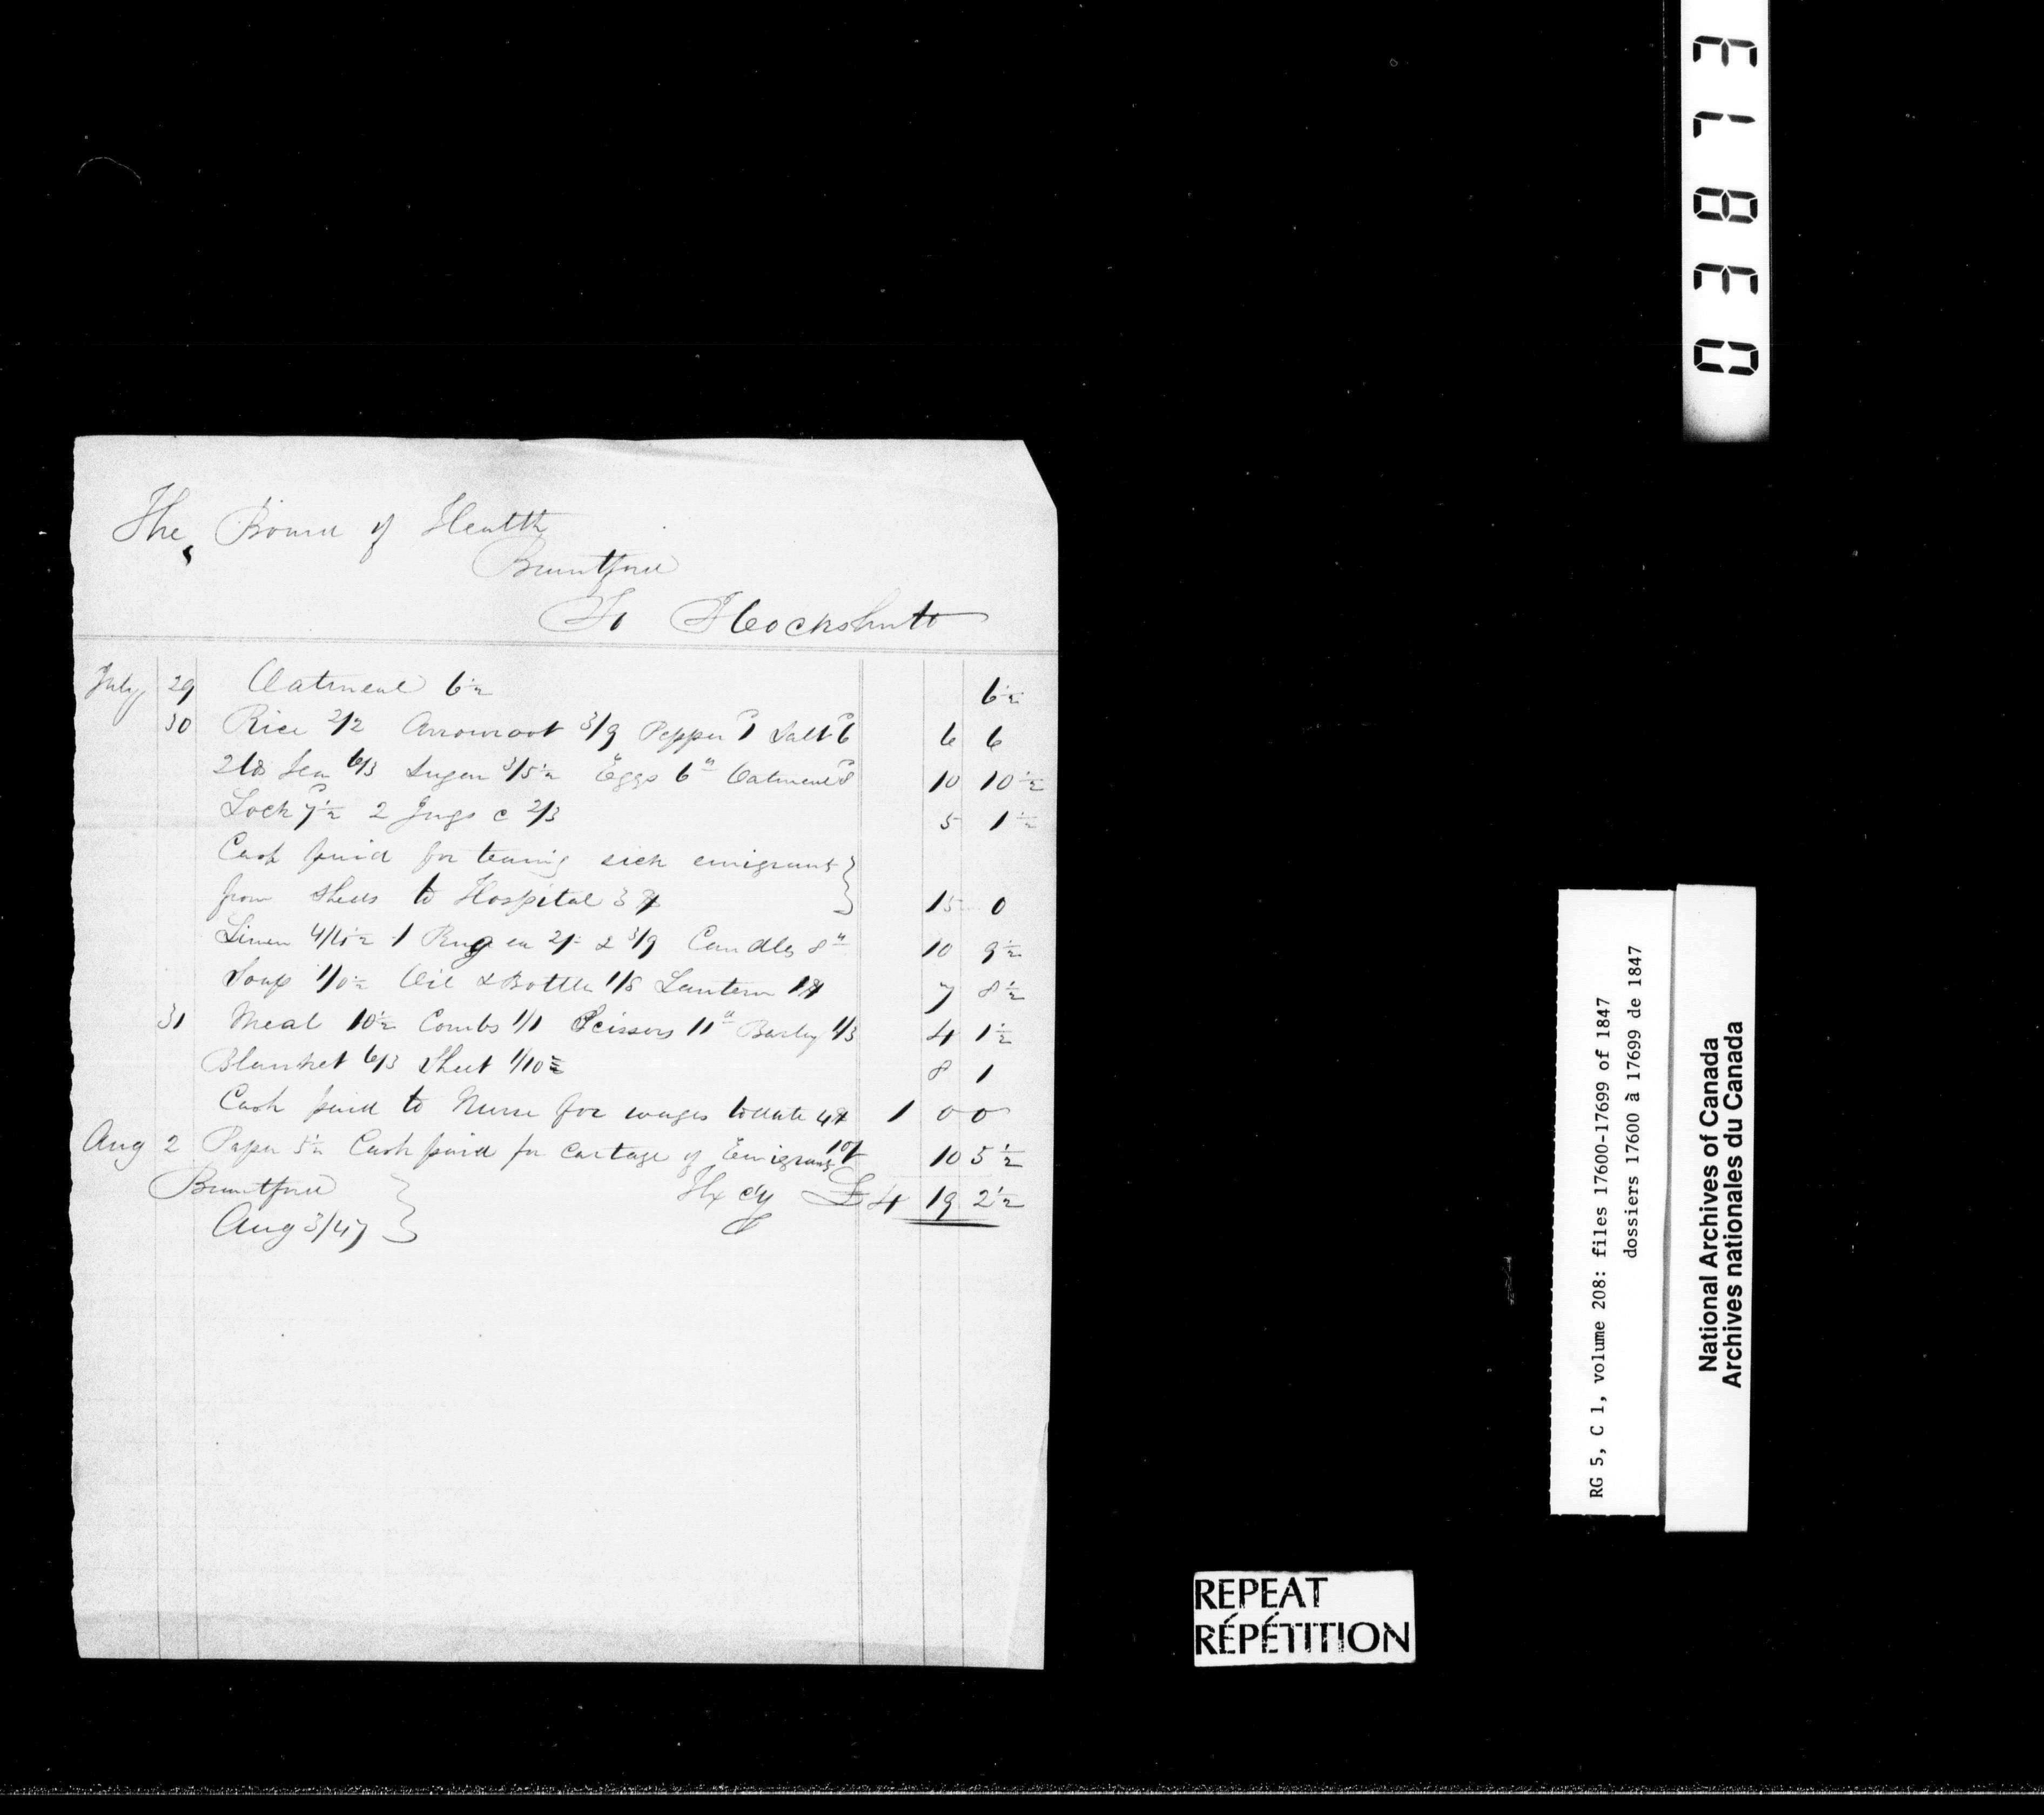 The Board of Health
Brantford
To I Cockshutt
July 29 Oatmeal 6½ 6½
30 Rice 2/2 Arrowroot 3/9 Pepper 1 Salt 6 6 6
2 lbs Tea 6/3 Sugar 3/5½ Eggs 6" Oatmeal 8 10 10½
Lock 7½ 2 Jugs c 2/3 5 1½
Cash paid for teaming sick emigrants
from sheds to Hospital 3 $ 15 0
Linen 4/4½ 1 Rug ea 2/- & 3/9 Candles 8" 10 9½
Soap 1/0½ Oil & Bottle 1/8 Lantern 1$ 7 8½
31 Meal 10½ Combs 1/1 Scissors 11" Barley 1/3 4 1½
Blanket 6/3 Sheet 1/10 8 1
Cash paid to Nurse for wages to date 4$ 1 0 0
Aug 2 Paper 5½ Cash paid for Cartage of Emigrants 10/ 10 5½
Brantford Hx cy £4 19 2½
Aug 3/47
37830
RG 5, C 1, volume 208: files 17600-17699 of 1847
dossiers 17600 à 17699 de 1847
National Archives of Canada
Archives nationales du Canada
REPEAT
RÉPÉTITION